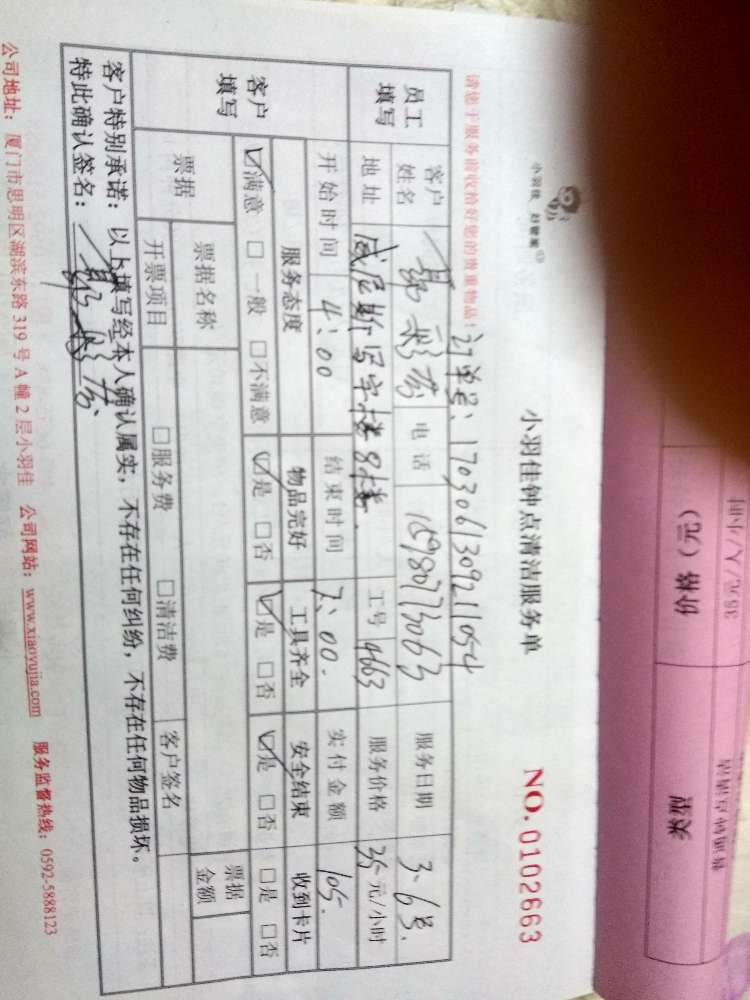 小羽佳 好管家
小羽佳钟点清洁服务单
NO.0102663
请您于服务前收拾好您的贵重物品！
订单号：17030613092111054
员工填写
客户姓名 电话 服务日期 3、6号、
地址 威尼斯写字楼8楼 工号 4663 服务价格 35元/小时
开始时间 4：00 结束时间 7：00 实付金额 105
客户填写
服务态度 物品完好 工具齐全 安全结束 收到卡片
☑满意 □一般 □不满意 ☑是 □否 ☑是 □否 ☑是 □否 □是 □否
票据 票据名称 票据金额
开票项目 □服务费 □清洁费 客户签名
客户特别承诺：以上填写经本人确认属实，不存在任何纠纷，不存在任何物品损坏。
特此确认签名：
公司地址：厦门市思明区湖滨东路319号A幢2层小羽佳 公司网站：www.xiaoyujia.com 服务监督热线：0592-5888123
价格（元）
类型